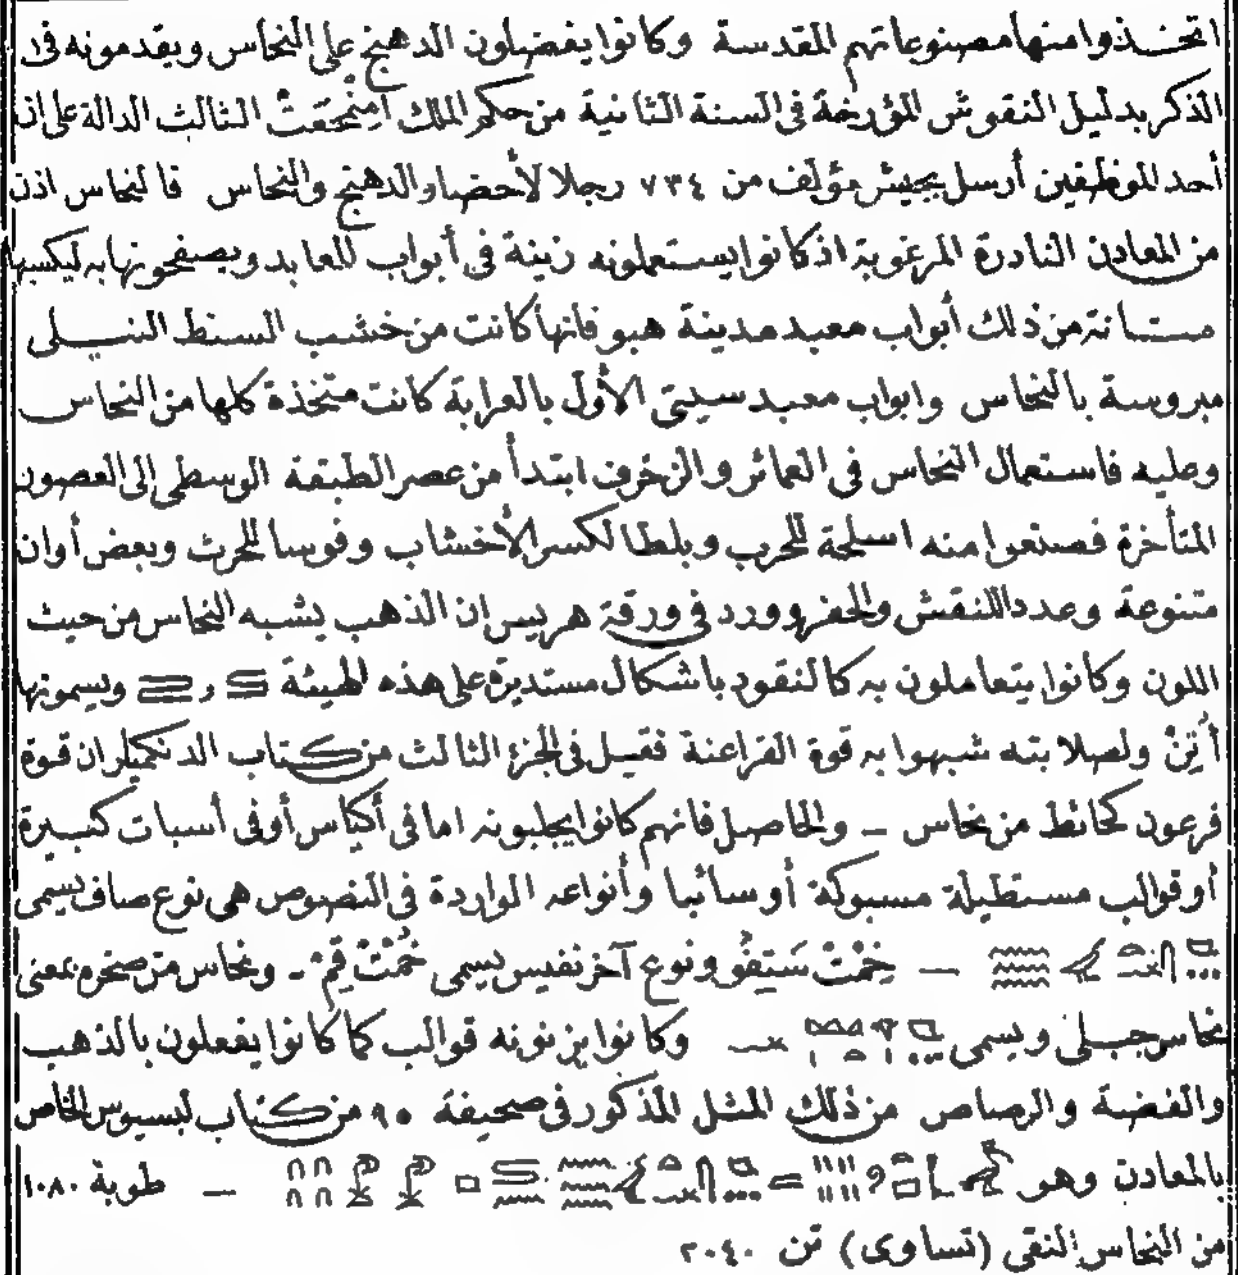 اتخذوا منها مصنوعاتهم المقدسة وكانوا يفضلون الدهنج على النحاس ويقدمونه فى
الذكر بدليل النقوش المؤرخة فى السنة الثانية من حكم الملك أمنمحعت الثالث الدالة على ان
أحد الموظفين أرسل بجيش مؤلف من ٧٣٤ رجلا لأحضار الدهنج والنحاس فالنحاس اذن
من المعادن النادرة المرغوبة اذ كانوا يستعملونه زينة فى أبواب المعابد ويصفحونها به ليكسبها
متانة من ذلك أبواب معبد مدينة هبو فانها كانت من خشب السنط النيلى
مبروسة بالنحاس وابواب معبد سيتى الأول بالعرابة كانت متخذة كلها من النحاس
وعليه فاستعمال النحاس فى العمائر والزخرف ابتدأ من عصر الطبقة الوسطى الى العصور
المتأخرة فصنعوا منه اسلحة للحرب وبلطا لكسر الأخشاب وفوسا للحرث وبعض أوان
متنوعة وعددا للنقش والحفر وورد فى ورقة هريس ان الذهب يشبه النحاس من حيث
اللون وكانوا يتعاملون به كالنقود باشكال مستديرة على هذه الهيئة و ويسمونها
أُتِنْ ولصلابته شبهوا به قوة الفراعنة فقيل فى الجزء الثالث من كتاب الدنكميلر ان قوة
فرعون كحائط من نحاس – والحاصل فانهم كانوا يجلبونه اما فى أكياس أو فى أسبات كبيرة
أو قوالب مستطيلة مسبوكة أو سائبا وأنواعه الواردة فى النصوص هى نوع صاف يسمى
– خِمْتْ سَتِفُو ونوع آخر نفيس يسمى خُمْتْ قِمْ – ونحاس من صخره بمعنى
نحاس جبلى ويسمى – وكانوا يزنونه قوالب كما كانوا يفعلون بالذهب
والفضة والرصاص من ذلك المثل المذكور فى صحيفة ٩٥ من كتاب لبسيوس الخاص
بالمعادن وهو – طوبة ١٠٨٠
من النحاس النقى (تساوى) تن ٢٠٤٠